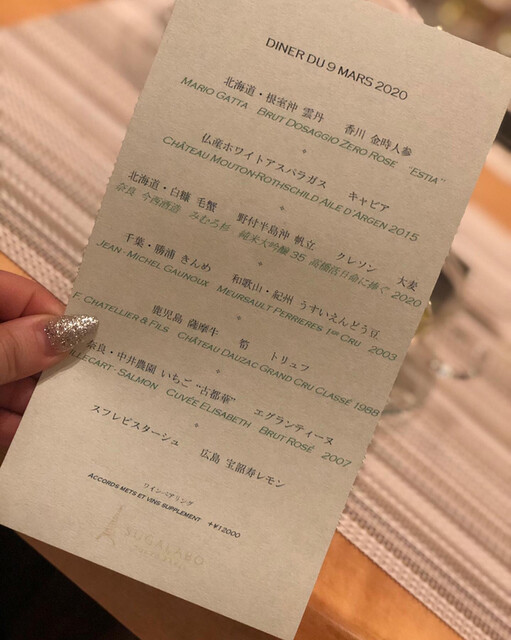 DINER DU 9 MARS 2020
北海道・根室沖 雲丹　香川 金時人参
MARIO GATTA BRUT DOSAGGIO ZERO ROSE "ESTIA"
仏産ホワイトアスパラガス　キャビア
CHÂTEAU MOUTON-ROTHSCHILD AILE D'ARGEN 2015
北海道・白糠 毛蟹　野付半島沖 帆立　クレソン　大麦
奈良 今西酒造 みむろ杉 純米大吟醸 35 高橋活日命に捧ぐ 2020
千葉・勝浦 きんめ　和歌山・紀州 うすいえんどう豆
JEAN-MICHEL GAUNOUX MEURSAULT PERRIERES 1ER CRU 2003
鹿児島 薩摩牛　筍　トリュフ
F. CHATELLIER & FILS CHÂTEAU DAUZAC GRAND CRU CLASSÉ 1988
奈良・中井農園 いちご "古都華"　エグランティーヌ
LLECART-SALMON CUVÉE ELISABETH BRUT ROSÉ 2007
スフレピスターシュ　広島 宝韶寿レモン
ワインペアリング
ACCORDS METS ET VINS SUPPLEMENT +¥12000
SUGALABO